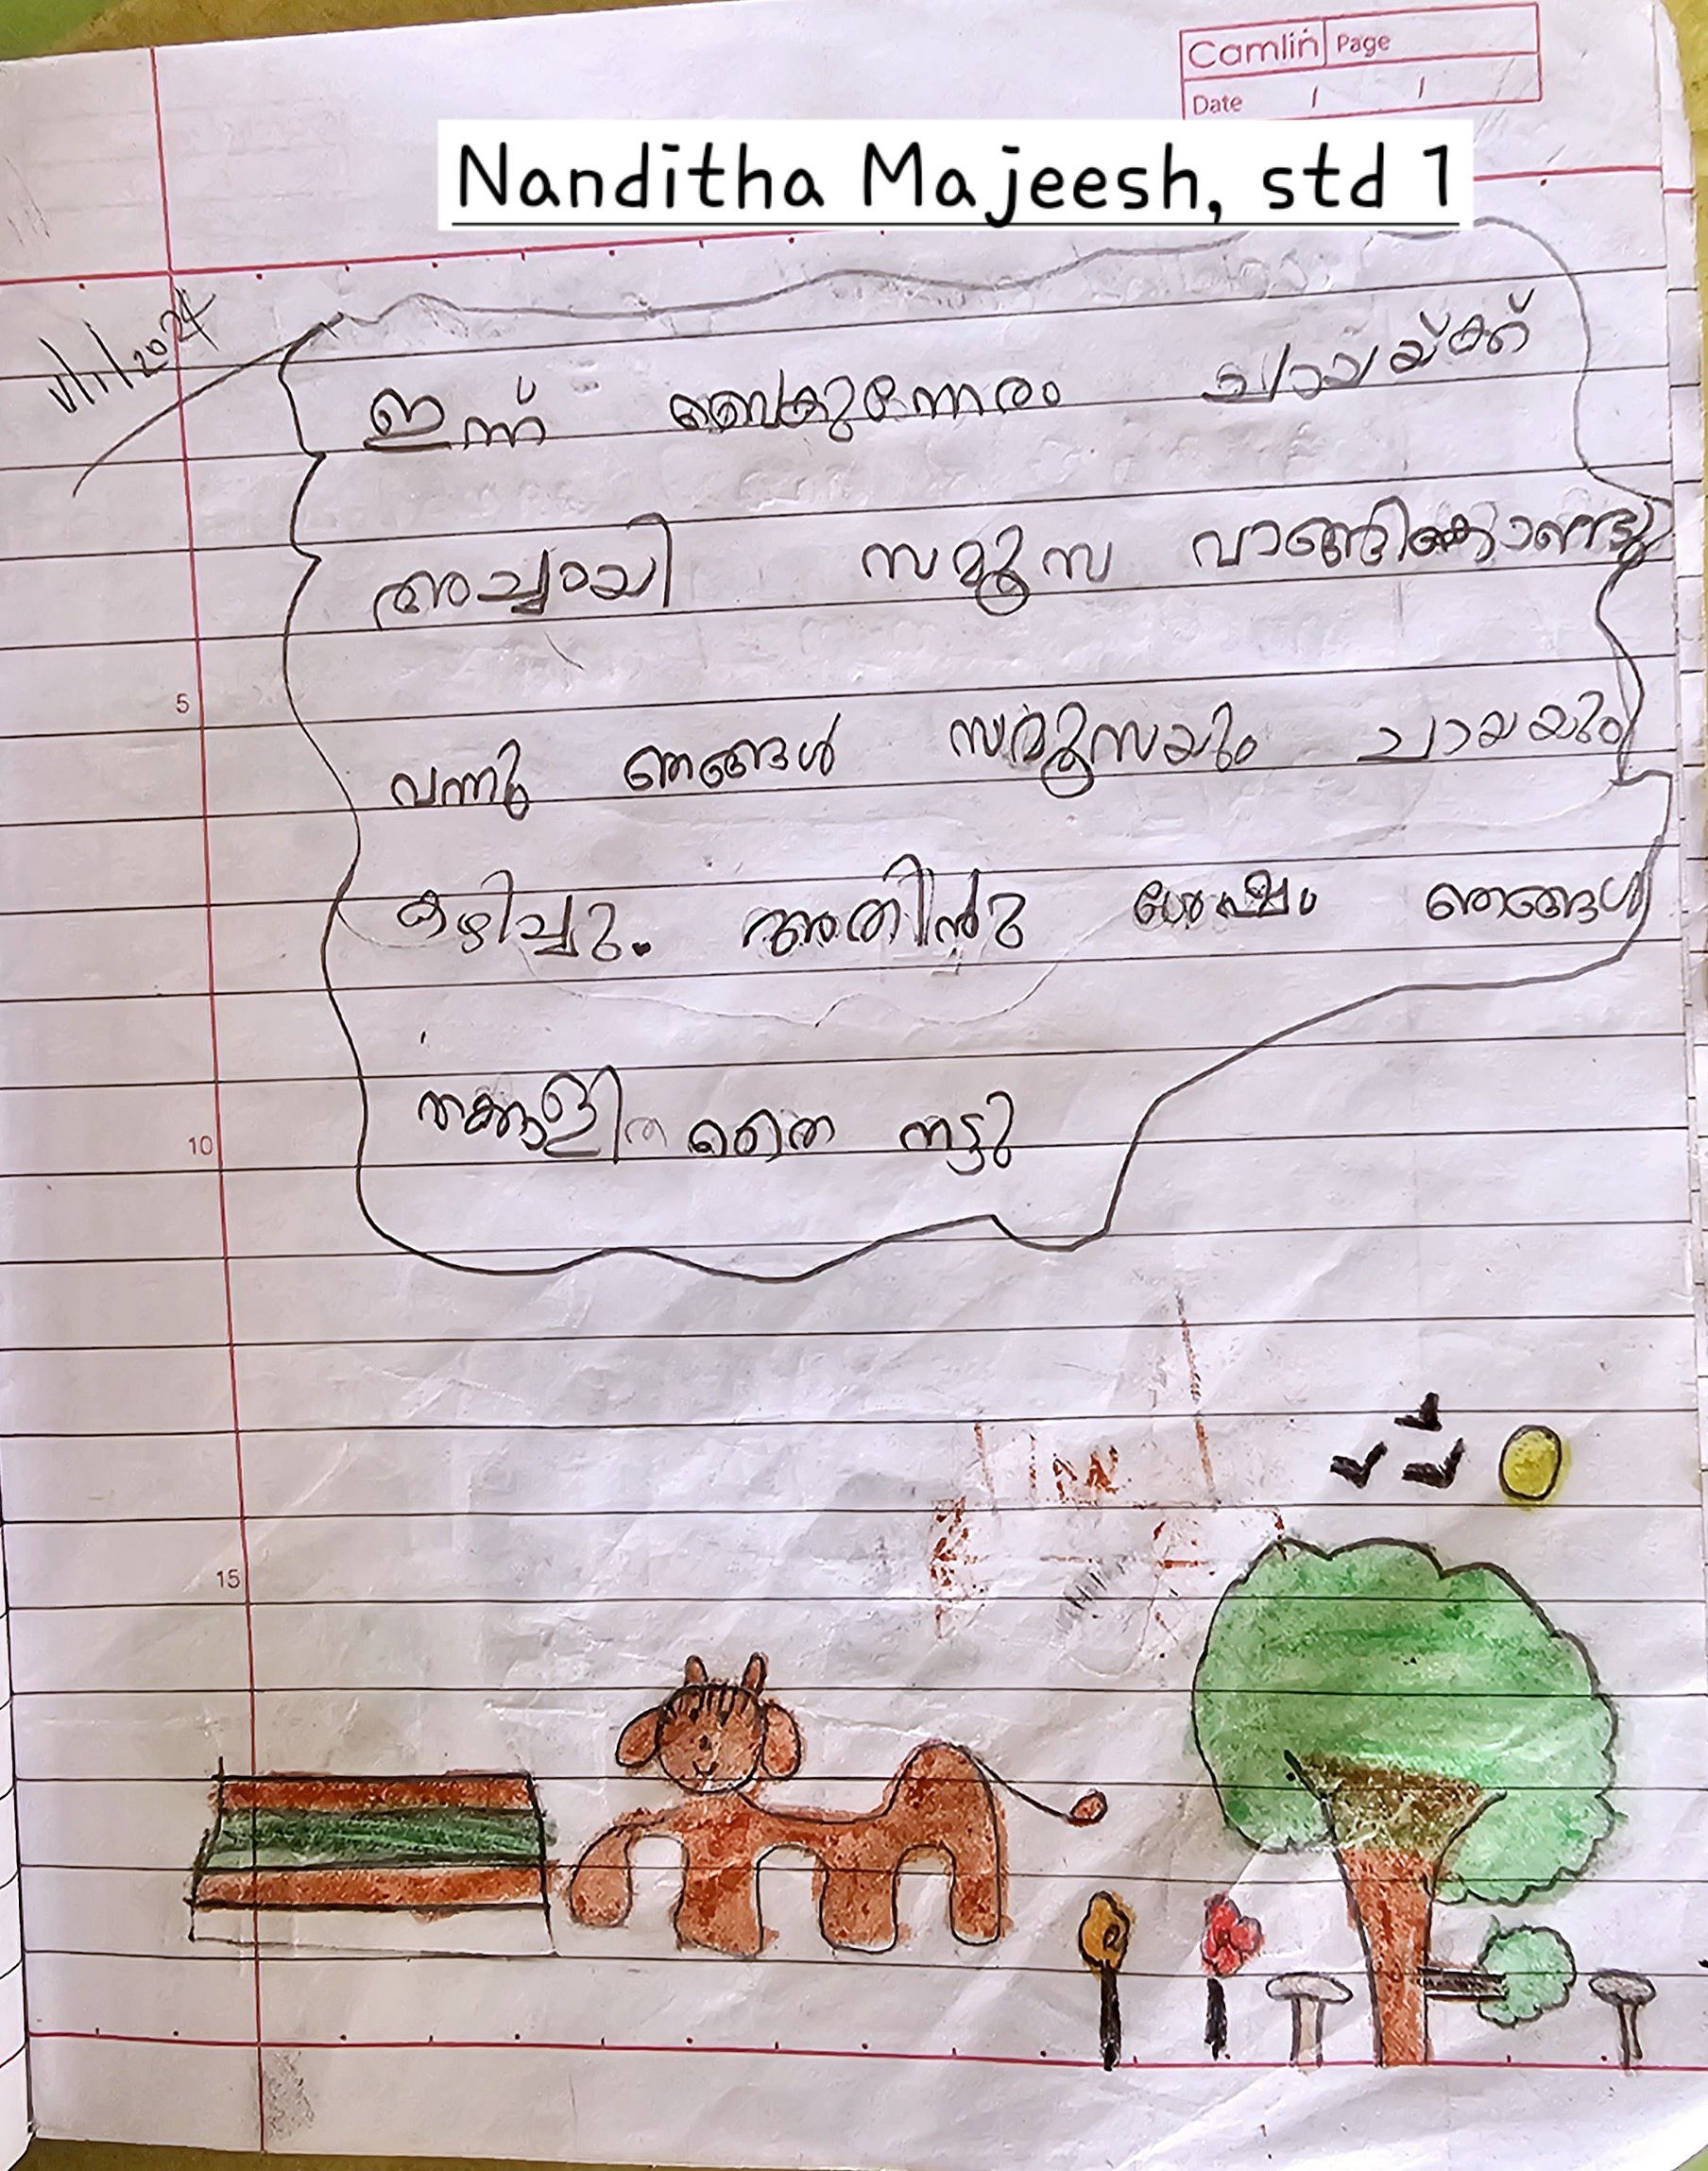 Camlin Page
Date / /
Nanditha Majeesh, std 1
11/11/2024
ഇന്ന് വൈകുന്നേരം ചായയ്ക്ക്
അച്ചായി സമൂസ വാങ്ങിക്കൊണ്ടു
വന്നു ഞങ്ങൾ സമൂസയും ചായയും
കഴിച്ചു. അതിൻു ശേഷം ഞങ്ങൾ
തക്കാളി തൈ നട്ടു
5
10
15